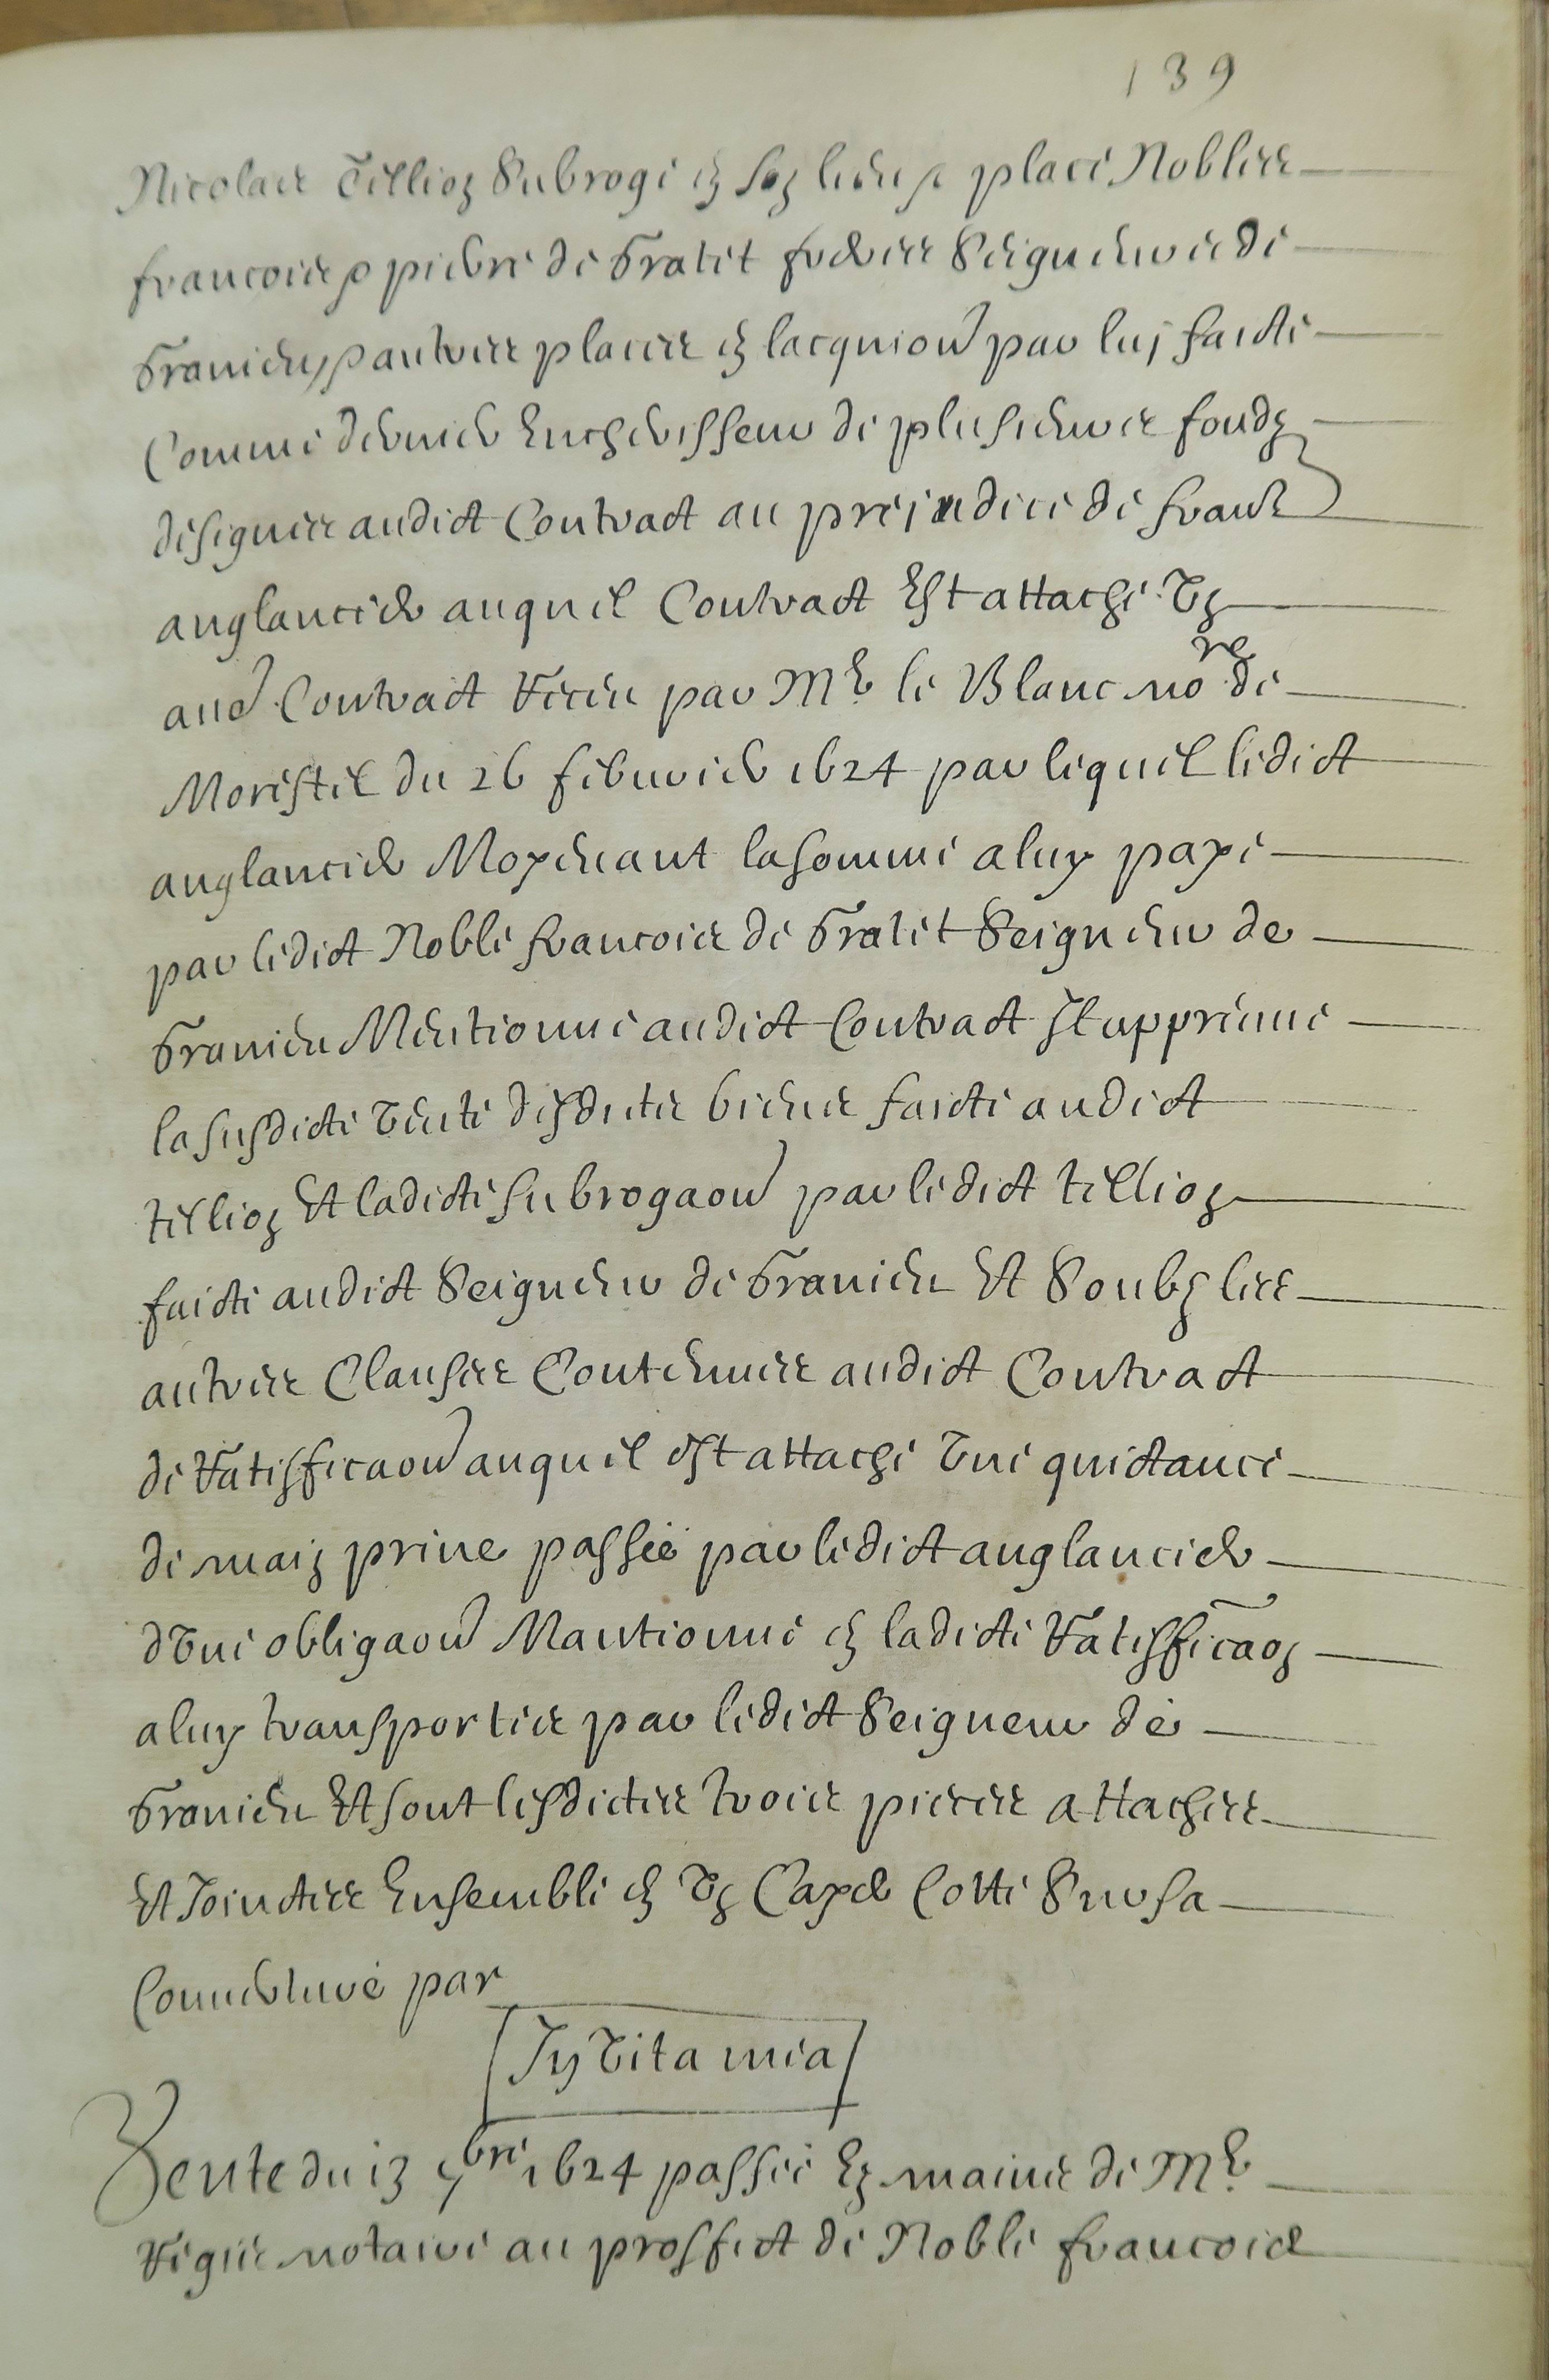 139
Nicolas Tillioz Subrogé en son lieu & place Nobles
francois & pierre de Gratet freres Seigneurs de
Granieu & autres places en lacquion par luy faicte
Comme dernier Encherisseur de plusieurs fondz
designes audict Contract au prejudice de franc
anglancier auquel Contract Est attaché Un
aue Contract Receu par Me le Blanc nore de
Morestel du 26 febvrier 1624 par lequel ledict
anglancier Moyenant la somme a luy payé
par ledict Noble francois de Gratet Seigneur de
Granieu Mentionné audict Contract Il appreuue
la susdicte Vente desdictz biens faicte audict
tillioz Et ladicte subrogaon par ledict tillioz
faicte audict Seigneur de Granieu Et Soubz les
autres Clauses Contenues audict Contract
de Ratifficaon auquel est attaché Vne quictance
de main privé passée par ledict anglancier
dVne obligaon Mantionné en ladicte Ratifficaon
a luy transportée par ledict Seigneur de
Granieu Et sont lesdictes trois pieces attachees
Et Joinctes Ensemble en Un Cayer Cotté Sur sa
Couuerture par
In Vita mea
Vente du 13 7bre 1624 passée Ez mains de Me
notaire au proffict de Noble francois